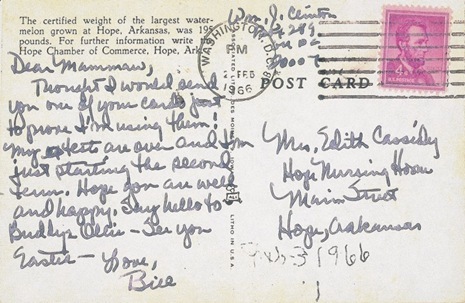 The certified weight of the largest water-
melon grown at Hope, Arkansas, was 195
pounds. For further information write
Hope Chamber of Commerce, Hope, Ark
Wm. J. Clinton
WASHINGTON, D.C.
PM
FEB
1966
4¢
POST CARD
Dear Mammaw,
Thought I would send
you one of your cards just
to prove I'm using them!
My tests are over and I'm
just starting the second
term. Hope you are well
and happy. Say hello to
Buddy & Ollie - See you
Easter - Love,
Bill
LITHO IN U.S.A.
Mrs. Edith Cassidy
Hope Nursing Home
Main Street
Hope, Arkansas
Feb 3 1966